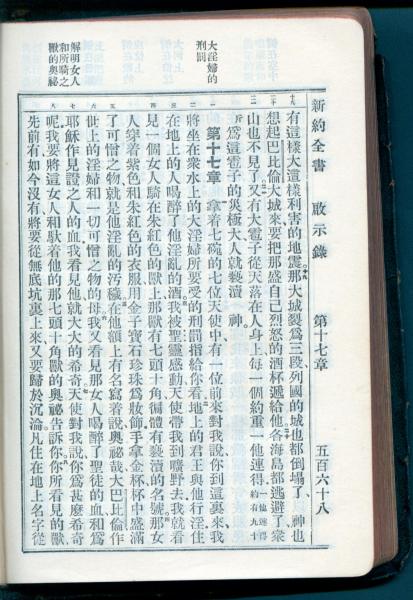 新約全書 啟示錄 第十七章 五百六十八
大淫婦的
刑罰
解明女人
和所騎之
獸的奧祕
十九 二十 二一 一 二 三 四 五 六 七 八
有這樣大這樣利害的地震那大城裂爲三段列國的城也都倒塌了神也
想起巴比倫大城來要把那盛自己烈怒的酒杯遞給他各海島都逃避了衆
山也不見了又有大雹子從天落在人身上每一個約重一他連得一他連得約有九十
斤爲這雹子的災極大人就褻瀆 神
第十七章 拿着七碗的七位天使中有一位前來對我說你到這裏來我
將坐在衆水上的大淫婦所要受的刑罰指給你看地上的君王與他行淫住
在地上的人喝醉了他淫亂的酒我被聖靈感動天使帶我到曠野去我就看
見一個女人騎在朱紅色的獸上那獸有七頭十角徧體有褻瀆的名號那女
人穿着紫色和朱紅色的衣服用金子寶石珍珠爲妝飾手拿金杯杯中盛滿
了可憎之物就是他淫亂的污穢在他額上有名寫着說奧祕哉大巴比倫作
世上的淫婦和一切可憎之物的母我又看見那女人喝醉了聖徒的血和爲
耶穌作見證之人的血我看見他就大大的希奇天使對我說你爲甚麼希奇
呢我要將這女人和馱着他的那七頭十角獸的奧祕告訴你你所看見的獸
先前有如今沒有將要從無底坑裏上來又要歸於沉淪凡住在地上名字從